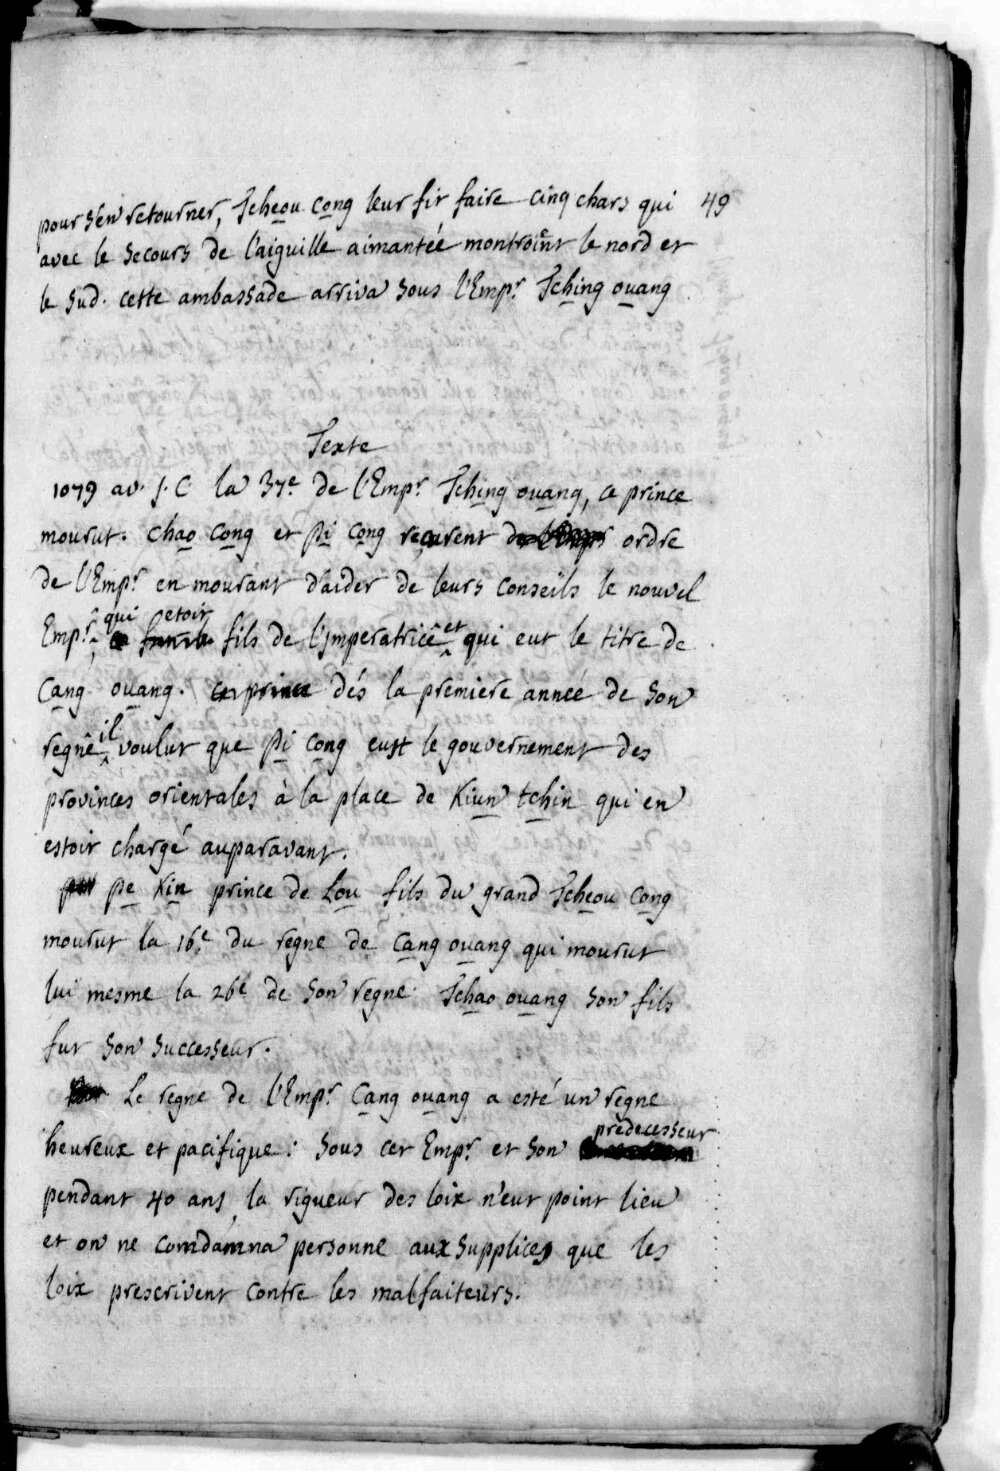 pour s'en retourner, Tcheou cong leur fit faire cinq chars qui 49
avec le secours de l'aiguille aimantée montroient le nord et
le sud. cette ambassade arriva sous l'Empr Tching ouang
Texte
1079 av. J. C la 37e de l'Empr Tching ouang, ce prince
mourut. chao cong et pi cong reçurent ordre
de l'Empr en mourant d'aider de leurs conseils le nouvel
Empr qui etoit fils de l'Imperatrice et qui eut le titre de
Cang ouang. ce prince dés la premiere année de son
regne il voulut que pi cong eust le gouvernement des
provinces orientales à la place de Kiun tchin qui en
estoit chargé auparavant.
pe Kin prince de Lou fils du grand Tcheou cong
mourut la 16e du regne de cang ouang qui mourut
lui mesme la 26e de son regne. Tchao ouang son fils
fut son successeur.
Le regne de l'Empr Cang ouang a esté un regne
heureux et pacifique: sous cet Empr et son predecesseur
pendant 40 ans, la rigueur des loix n'eut point lieu
et on ne comdamna personne aux supplices que les
loix prescrivent contre les malfaiteurs.